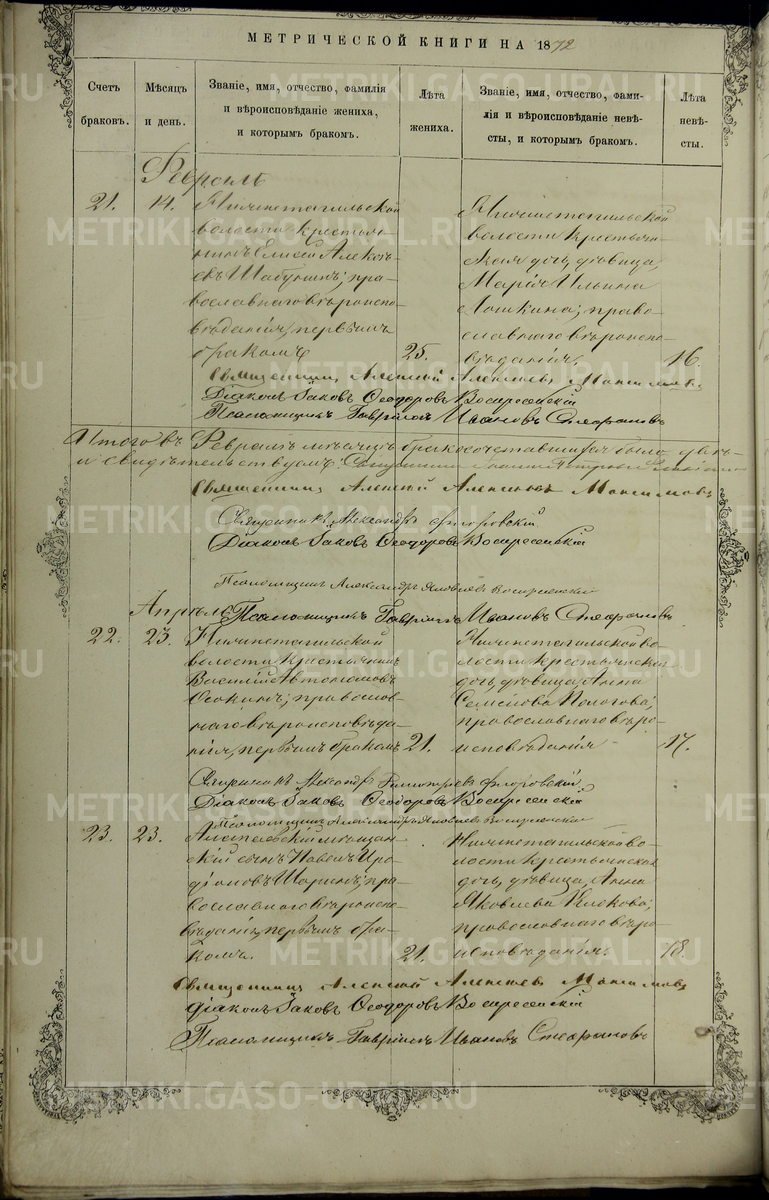 МЕТРИЧЕСКОЙ КНИГИ НА 1872
Счетъ браковъ.
Мѣсяцъ и день.
Званіе, имя, отчество, фамилія
и вѣроисповѣданіе жениха,
и которымъ бракомъ.
Лѣта жениха.
Званіе, имя, отчество, фами-
лія и вѣроисповѣданіе невѣ-
сты, и которымъ бракомъ.
Лѣта невѣ-
сты.
Февраль
21. 14.
Нижнетагильской
волости крестья-
нинъ Елисей Алексѣ-
евъ Шабунинъ; пра-
вославнаго вѣроиспо-
вѣданія, первымъ
бракомъ
25.
Нижнетагильской
волости крестьян-
ская дочь, дѣвица,
Марія Ильина
Лошкина; право-
славнаго вѣроиспо-
вѣданія,
16.
Священникъ Алексѣй Алексѣевъ Максимовъ
Діаконъ Іаковъ Ѳеодоровъ Воскресенскій
Псаломщикъ Гавріилъ Ивановъ Стефановъ
Итого въ Февралѣ мѣсяцѣ бракосочетавшихся было
и свидѣтельствуемъ
Священникъ Алексѣй Алексѣевъ Максимовъ
Священникъ Александръ Флоровскій
Діаконъ Іаковъ Ѳеодоровъ Воскресенскій
Псаломщикъ Александръ Яковлевъ Воскресенскій
Апрѣль
Псаломщикъ Гавріилъ Ивановъ Стефановъ
22. 23.
Нижнетагильской
волости крестьянинъ
Василій Автономовъ
Осокинъ; православ-
наго вѣроисповѣда-
нія, первымъ бракомъ
21.
Нижнетагильской во-
лости крестьянская
дочь, дѣвица, Анна
Семенова Пологова;
православнаго вѣро-
исповѣданія
17.
Священникъ Александръ Флоровскій
Діаконъ Іаковъ Ѳеодоровъ Воскресенскій
Псаломщикъ Александръ Яковлевъ Воскресенскій
23. 23.
Алапаевскій мѣщан-
скій сынъ Павелъ Иро-
діоновъ Шоринъ; пра-
вославнаго вѣроиспо-
вѣданія, первымъ бра-
комъ.
21.
Нижнетагильской во-
лости крестьянская
дочь, дѣвица, Анна
Яковлева Клюкова;
православнаго вѣро-
исповѣданія.
18.
Священникъ Алексѣй Алексѣевъ Максимовъ
Діаконъ Іаковъ Ѳеодоровъ Воскресенскій
Псаломщикъ Гавріилъ Ивановъ Стефановъ
METRIKI.GASO-URAL.RU